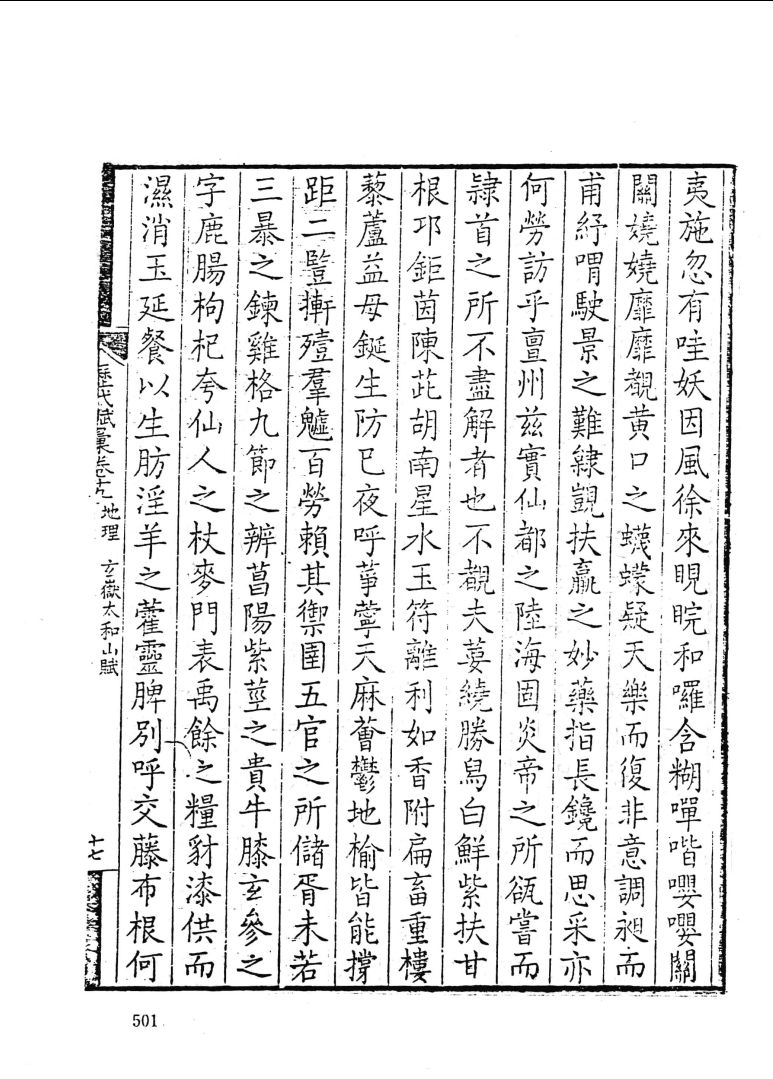 夷施忽有哇妖因風徐來睍睆和囉含糊嘽喈嚶嚶關
關嬈嬈靡靡覩黃口之蠛蠓疑天樂而復非意調昶而
甫紓喟駛景之難䋲覬扶羸之妙藥指長鑱而思采亦
何勞訪乎亶州兹實仙都之陸海固炎帝之所㼐嘗而
隷首之所不盡解者也不觀夫葽繞勝舃白鮮紫扶甘
根邛鉅茵陳茈胡南星水玉符離利如香附扁畜重樓
藜蘆益母鋋生防已夜呼葶藶天麻薈鬱地榆皆能撐
距二豎㨻殪羣魖百勞賴其禦圉五官之所儲胥未若
三暴之鍊雞格九節之辨菖陽紫莖之貴牛膝玄參之
字鹿腸枸杞夸仙人之杖麥門表禹餘之糧豺漆供而
濕消玉延餐以生肪淫羊之藿靈脾別呼交藤布根何
歷代賦彙卷十九 地理 玄嶽太和山賦
十七
501